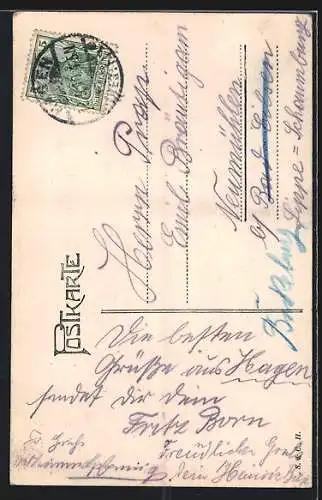 POSTKARTE
Herrn Propr.
Emil Bräutigam
Neumühlen
b/ Bad Eilsen
Lippe = Schaumburg
Bückeburg
Die besten
Grüße aus Hagen
sendet dir dein
Fritz Born
Freundlichen Gruß
dein
S. & G. H.
5